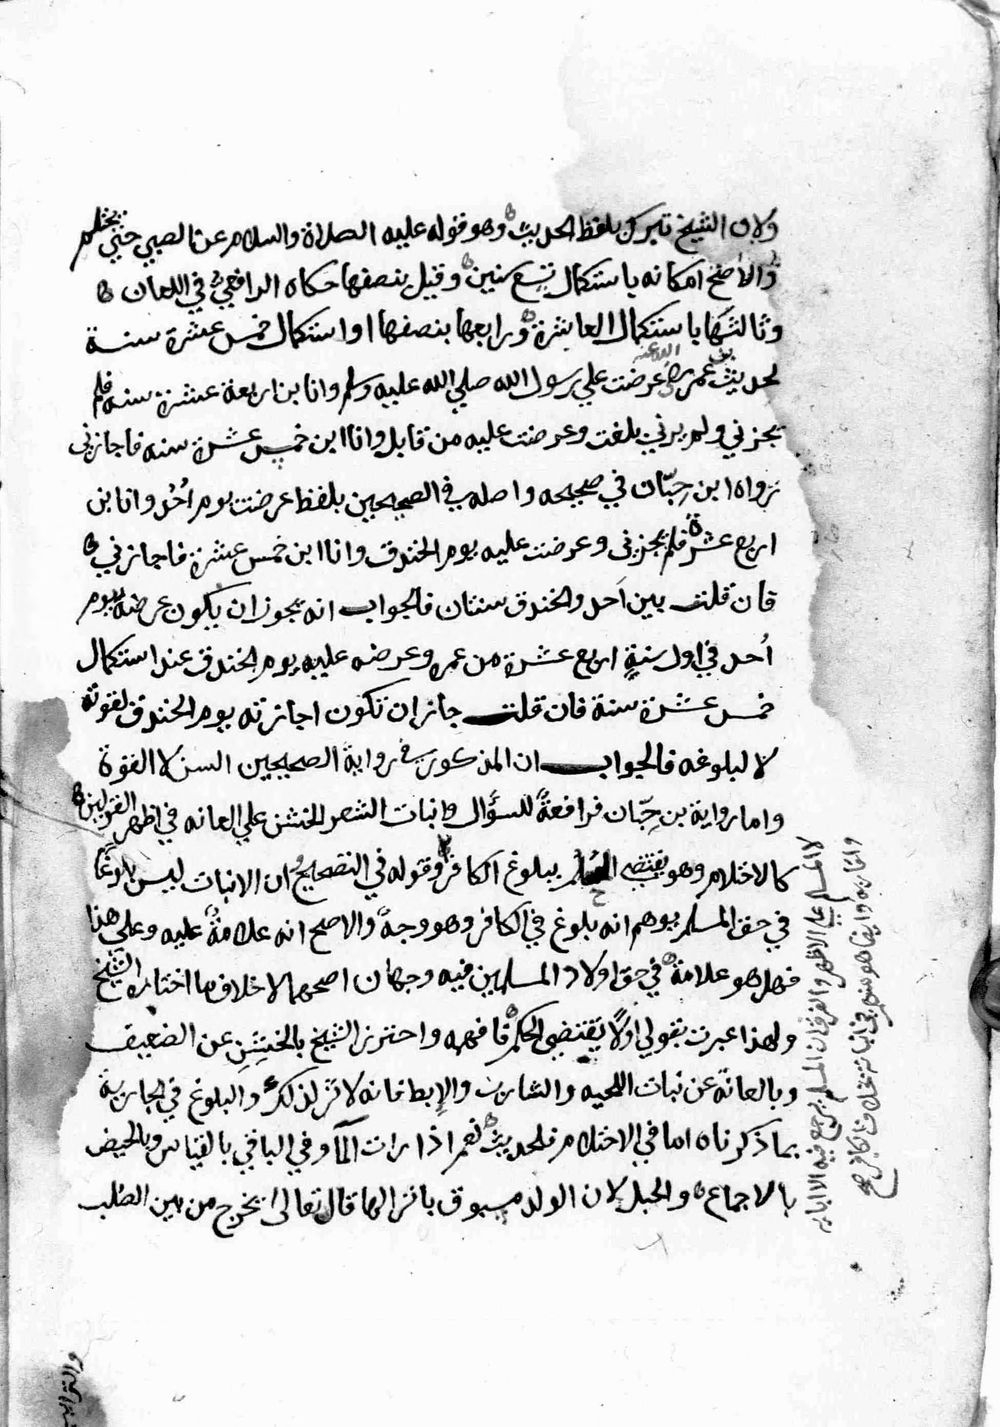 ولان الشيخ تبرك بلفظ الحديث وهو قوله عليه الصلاة والسلام عن الصبي حتي يحتلم
والاصح امكانه باستكمال تسع سنين وقيل بنصفها حكاه الرافعي في اللعان
وثالثها باستكمال العاشرة ورابعها بنصفها او استكمال خمس عشرة سنة
لحديث بن عمر رضي الله عنه عرضت علي رسول الله صلي الله عليه وسلم وانا بن اربعة عشرة سنه فلم
يجزني ولم يرني بلغت وعرضت عليه من قابل وانا ابن خمس عشرة سنه فاجازني
رواه ابن حِبّان في صحيحه واصله في الصحيحين بلفظ عرضت يوم اُحُد وانا بن
اربع عشرة فلم يجزني وعرضت عليه يوم الخندق وانا ابن خمس عشرة فاجازني
فان قلت بين احد والخندق سنتان فالجواب انه يجوز ان يكون عرضه يوم
اُحد في اول سنةٍ اربع عشرة من عمره وعرضه عليه يوم الخندق عند استكمال
خمس عشرة سنة فان قلت جاز ان تكون اجازته يوم الخندق لقوته
لا لبلوغه فالجواب ان المذكور في رواية الصحيحين السن لا القوة
واما رواية بن حِبّان فرافعةً للسؤال وانبات الشعر الخشن علي العانه في اظهر القولين
كالاحتلام وهو يقتضي الحكم ببلوغ الكافر وقوله في التصحيح ان الانبات ليس بلوغًا
في حق المسلم يوهم انه بلوغ في الكافر وهو وجهٌ والاصح انه علامةٌ عليه وعلي هذا
فهل هو علامة في حق اولاد المسلمين فيه وجهان اصحهما لا خلاف ما اختاره الشيخ
ولهذا عبرت بقولي اوّلًا يقتضي الحكم فافهمه واحترز الشيخ بالخشن عن الضعيف
وبالعانة عن نبات اللحيه والشارب والإبط فانه لا اثر لذلك والبلوغ في الجارية
بما ذكرناه اما في الاحتلام فلحديث نعم اذا رات الما وفي الباقي بالقياس وبالحيض
بالاجماع والحبل لان الولد مسبوق بانزالها قال تعالى يخرج من بين الصلب
لا المسلم علي الاظهر والفرق ان المسلم يرجع فيه الي
والترائب